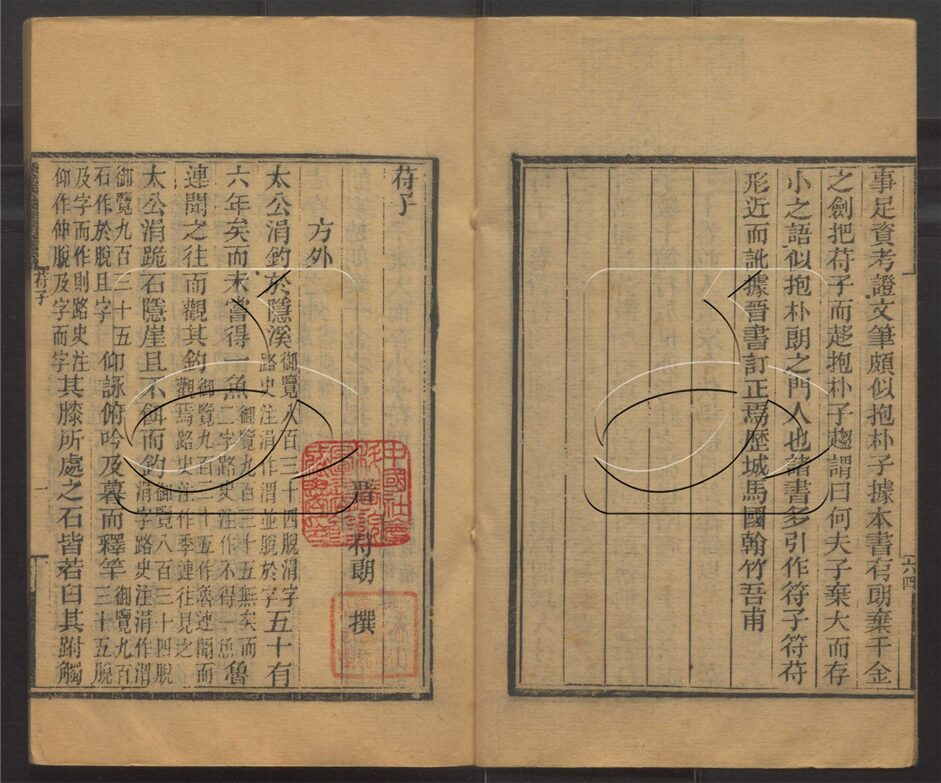 事足資考證文筆頗似抱朴子據本書有朗棄千金
之劍把苻子而趨抱朴子趨謂曰何夫子棄大而存
小之語似抱朴朗之門人也諸書多引作符子符苻
形近而訛據晉書訂正焉歴城馬國翰竹吾甫
六四
苻子
晉 苻朗 撰
方外
太公涓釣於隱溪御覽八百三十四脫涓字路史注涓作渭並脫於字五十有
六年矣而未嘗得一魚御覽九百三十五無矣而二字路史注作不得一魚魯
連聞之往而觀其釣御覽九百三十五作魯連聞而觀焉路史注作季連往見之
太公涓跪石隱崖且不餌而釣御覽八百三十四脫涓字路史注涓作渭
御覽九百三十五石作於脫且字仰詠俯吟及暮而釋竿御覽九百三十五脫
及字而作則路史注仰作伸脫及字而字其膝所處之石皆若臼其跗觸
苻子
一